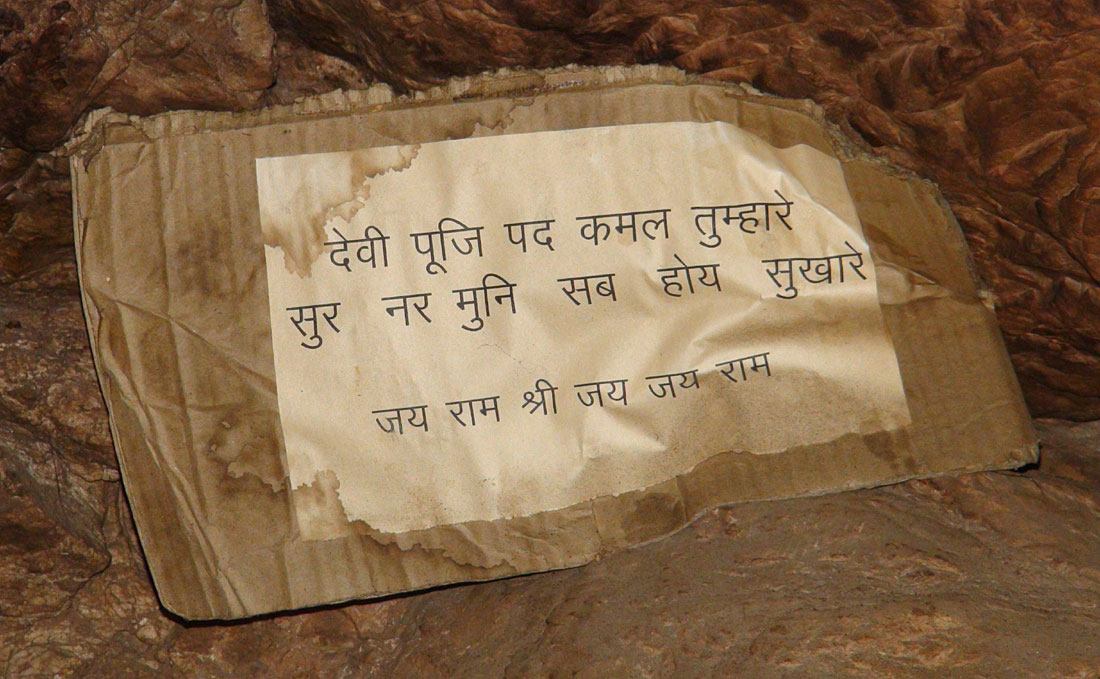 देवी पूजि पद कमल तुम्हारे
सुर नर मुनि सब होय सुखारे
जय राम श्री जय जय राम